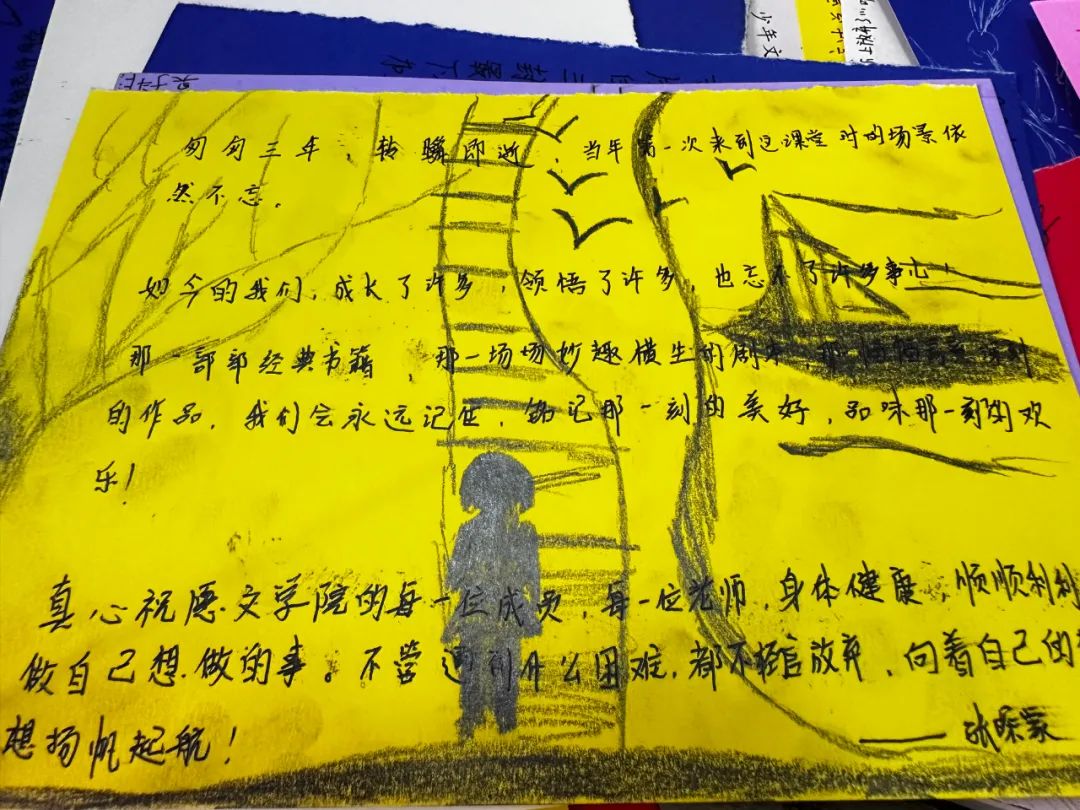 少年文
匆匆三年，转瞬即逝，当年第一次来到这课堂时的场景依
然不忘。
如今的我们，成长了许多，领悟了许多，也忘不了许多事吧！
那一部部经典书籍，那一场场妙趣横生的剧本，那
的作品，我们会永远记住，铭记那一刻的美好，品味那一刻的欢
乐！
真心祝愿文学院的每一位成员，每一位老师，身体健康，顺顺利利
做自己想做的事。不管遇到什么困难，都不轻言放弃，向着自己的
想扬帆起航！
——张